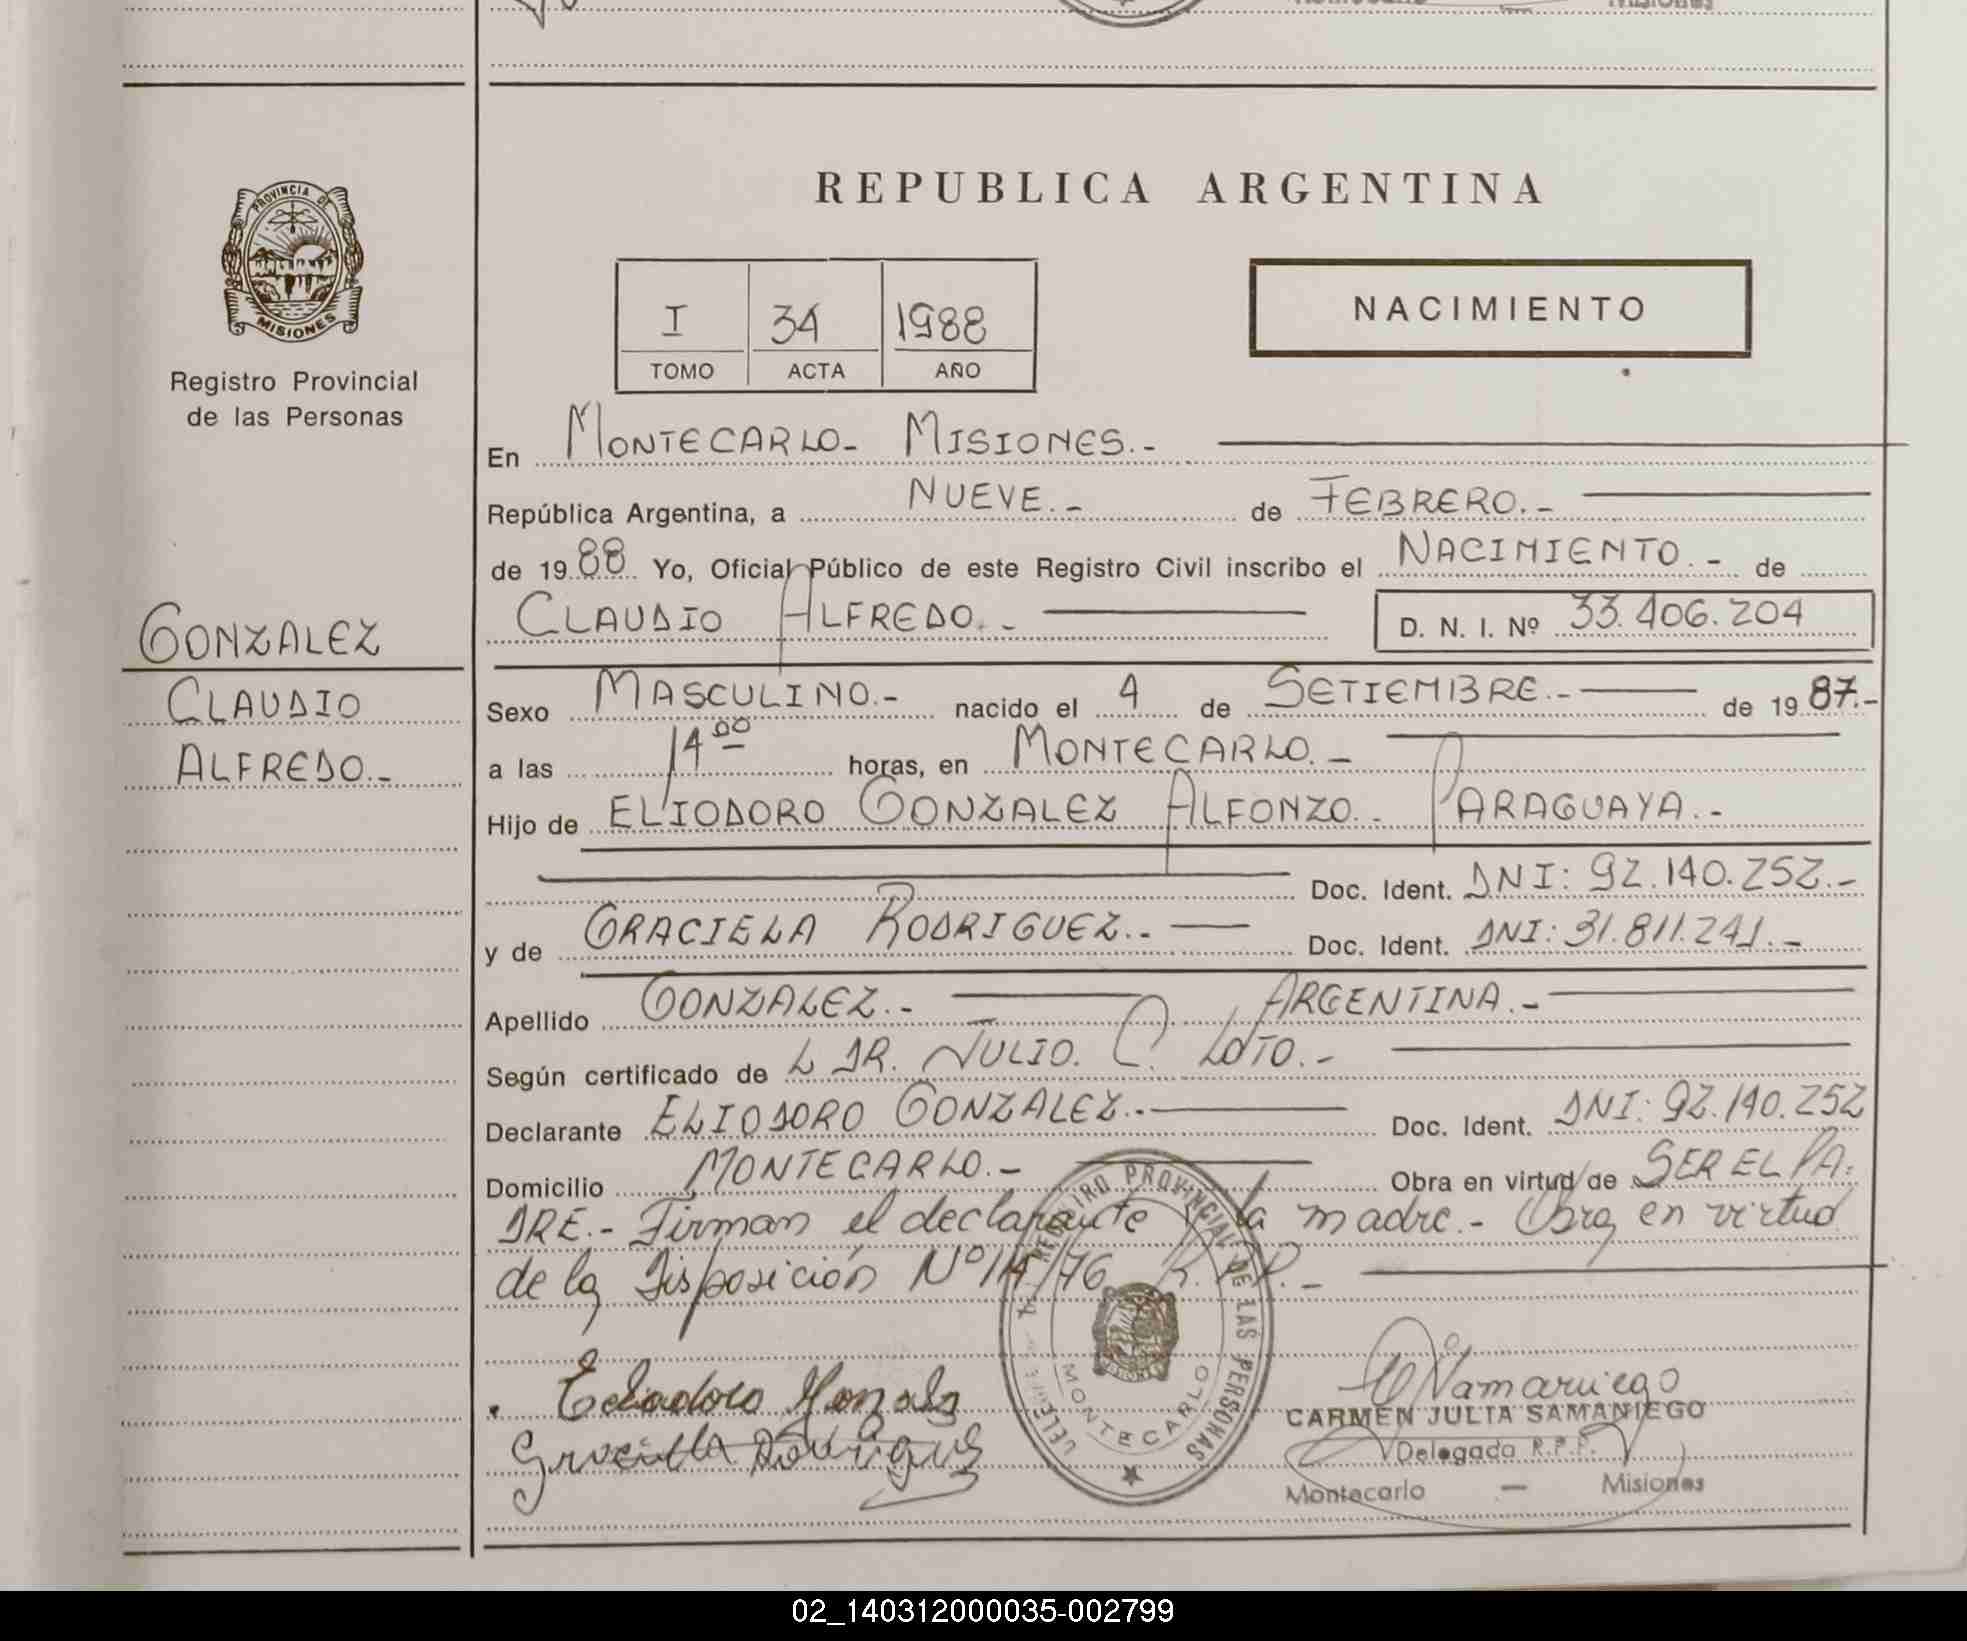 PROVINCIA DE
MISIONES
Registro Provincial
de las Personas
GONZALEZ
CLAUDIO
ALFREDO.-
REPUBLICA ARGENTINA
I 34 1988
TOMO ACTA AÑO
NACIMIENTO
En MONTECARLO- MISIONES.-
República Argentina, a NUEVE.- de FEBRERO.-
de 1988 Yo, Oficial Público de este Registro Civil inscribo el NACIMIENTO.- de
CLAUDIO ALFREDO.- D. N. I. Nº 33.406.204
Sexo MASCULINO.- nacido el 4 de SETIEMBRE.- de 1987.-
a las 14 00 horas, en MONTECARLO.-
Hijo de ELIODORO GONZALEZ ALFONZO.- PARAGUAYA.-
Doc. Ident. DNI: 92.140.252.-
y de GRACIELA RODRIGUEZ.- Doc. Ident. DNI: 31.811.241.-
Apellido GONZALEZ.- ARGENTINA.-
Según certificado de L DR. JULIO. C. LOTO.-
Declarante ELIODORO GONZALEZ.- Doc. Ident. DNI: 92.140.252
Domicilio MONTECARLO.- Obra en virtud de SER EL PA-
DRE.- Firman el declarante y la madre.- Obra en virtud
de la Disposición Nº 114/76 R.P.P.-
REGISTRO PROVINCIAL DE LAS PERSONAS
MONTECARLO
CARMEN JULIA SAMANIEGO
Delegada R.P.P.
Montecarlo - Misiones
02_140312000035-002799